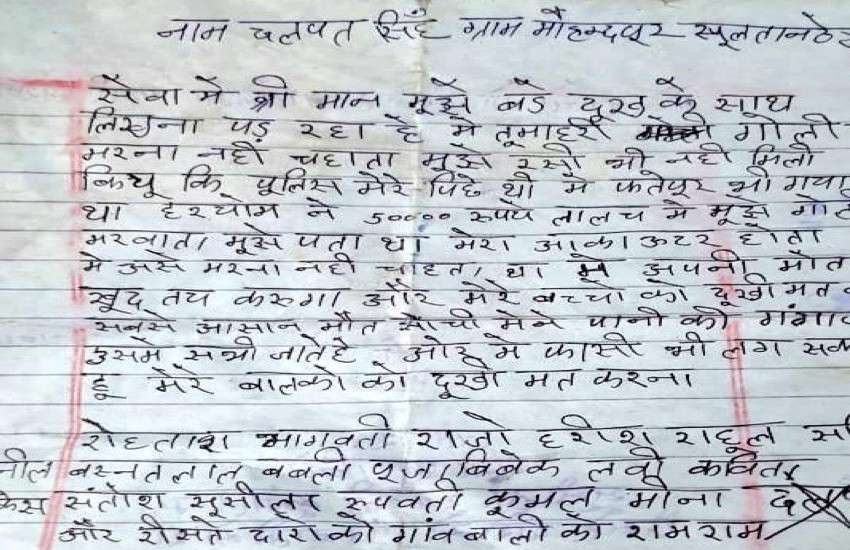 नाम दलपत सिँह ग्राम मौहम्दपूर सूलतानठेर
सेवा मे श्री मान मूझे बडे दूख के साथ
लिखना पड़ रहा है मे तूमाहरी गोली
मरना नही चहाता मूझे रसी भी नही मिली
कियू कि पूलिस मेरे पिछे थी मे फतेपूर भी गया
था हरयोम ने 500000 रूपय लालच मे मूझे गो
मरवाता मूसे पता था मेरा आकाऊटर होता
मे असे मरना नही चाहता था मे अपनी मौत
खूद तय करूगा और मेरे बच्चो को दूखी मत
सबसे आसान मौत सोची मेने पानी को गंगा
उसमे सभी जातेहे ओरू मे फासी भी लग सक
हू मेरे बालको को दूखी मत करना
रोहताश भागवती राजो हरीश राहूल
नील बसनतलाल बबली पूजा बिबेक लवी कविता
केस संतोश सूसीला रूपवती कूमल मोना
और रीसते दारो को गांव वालो को रामराम